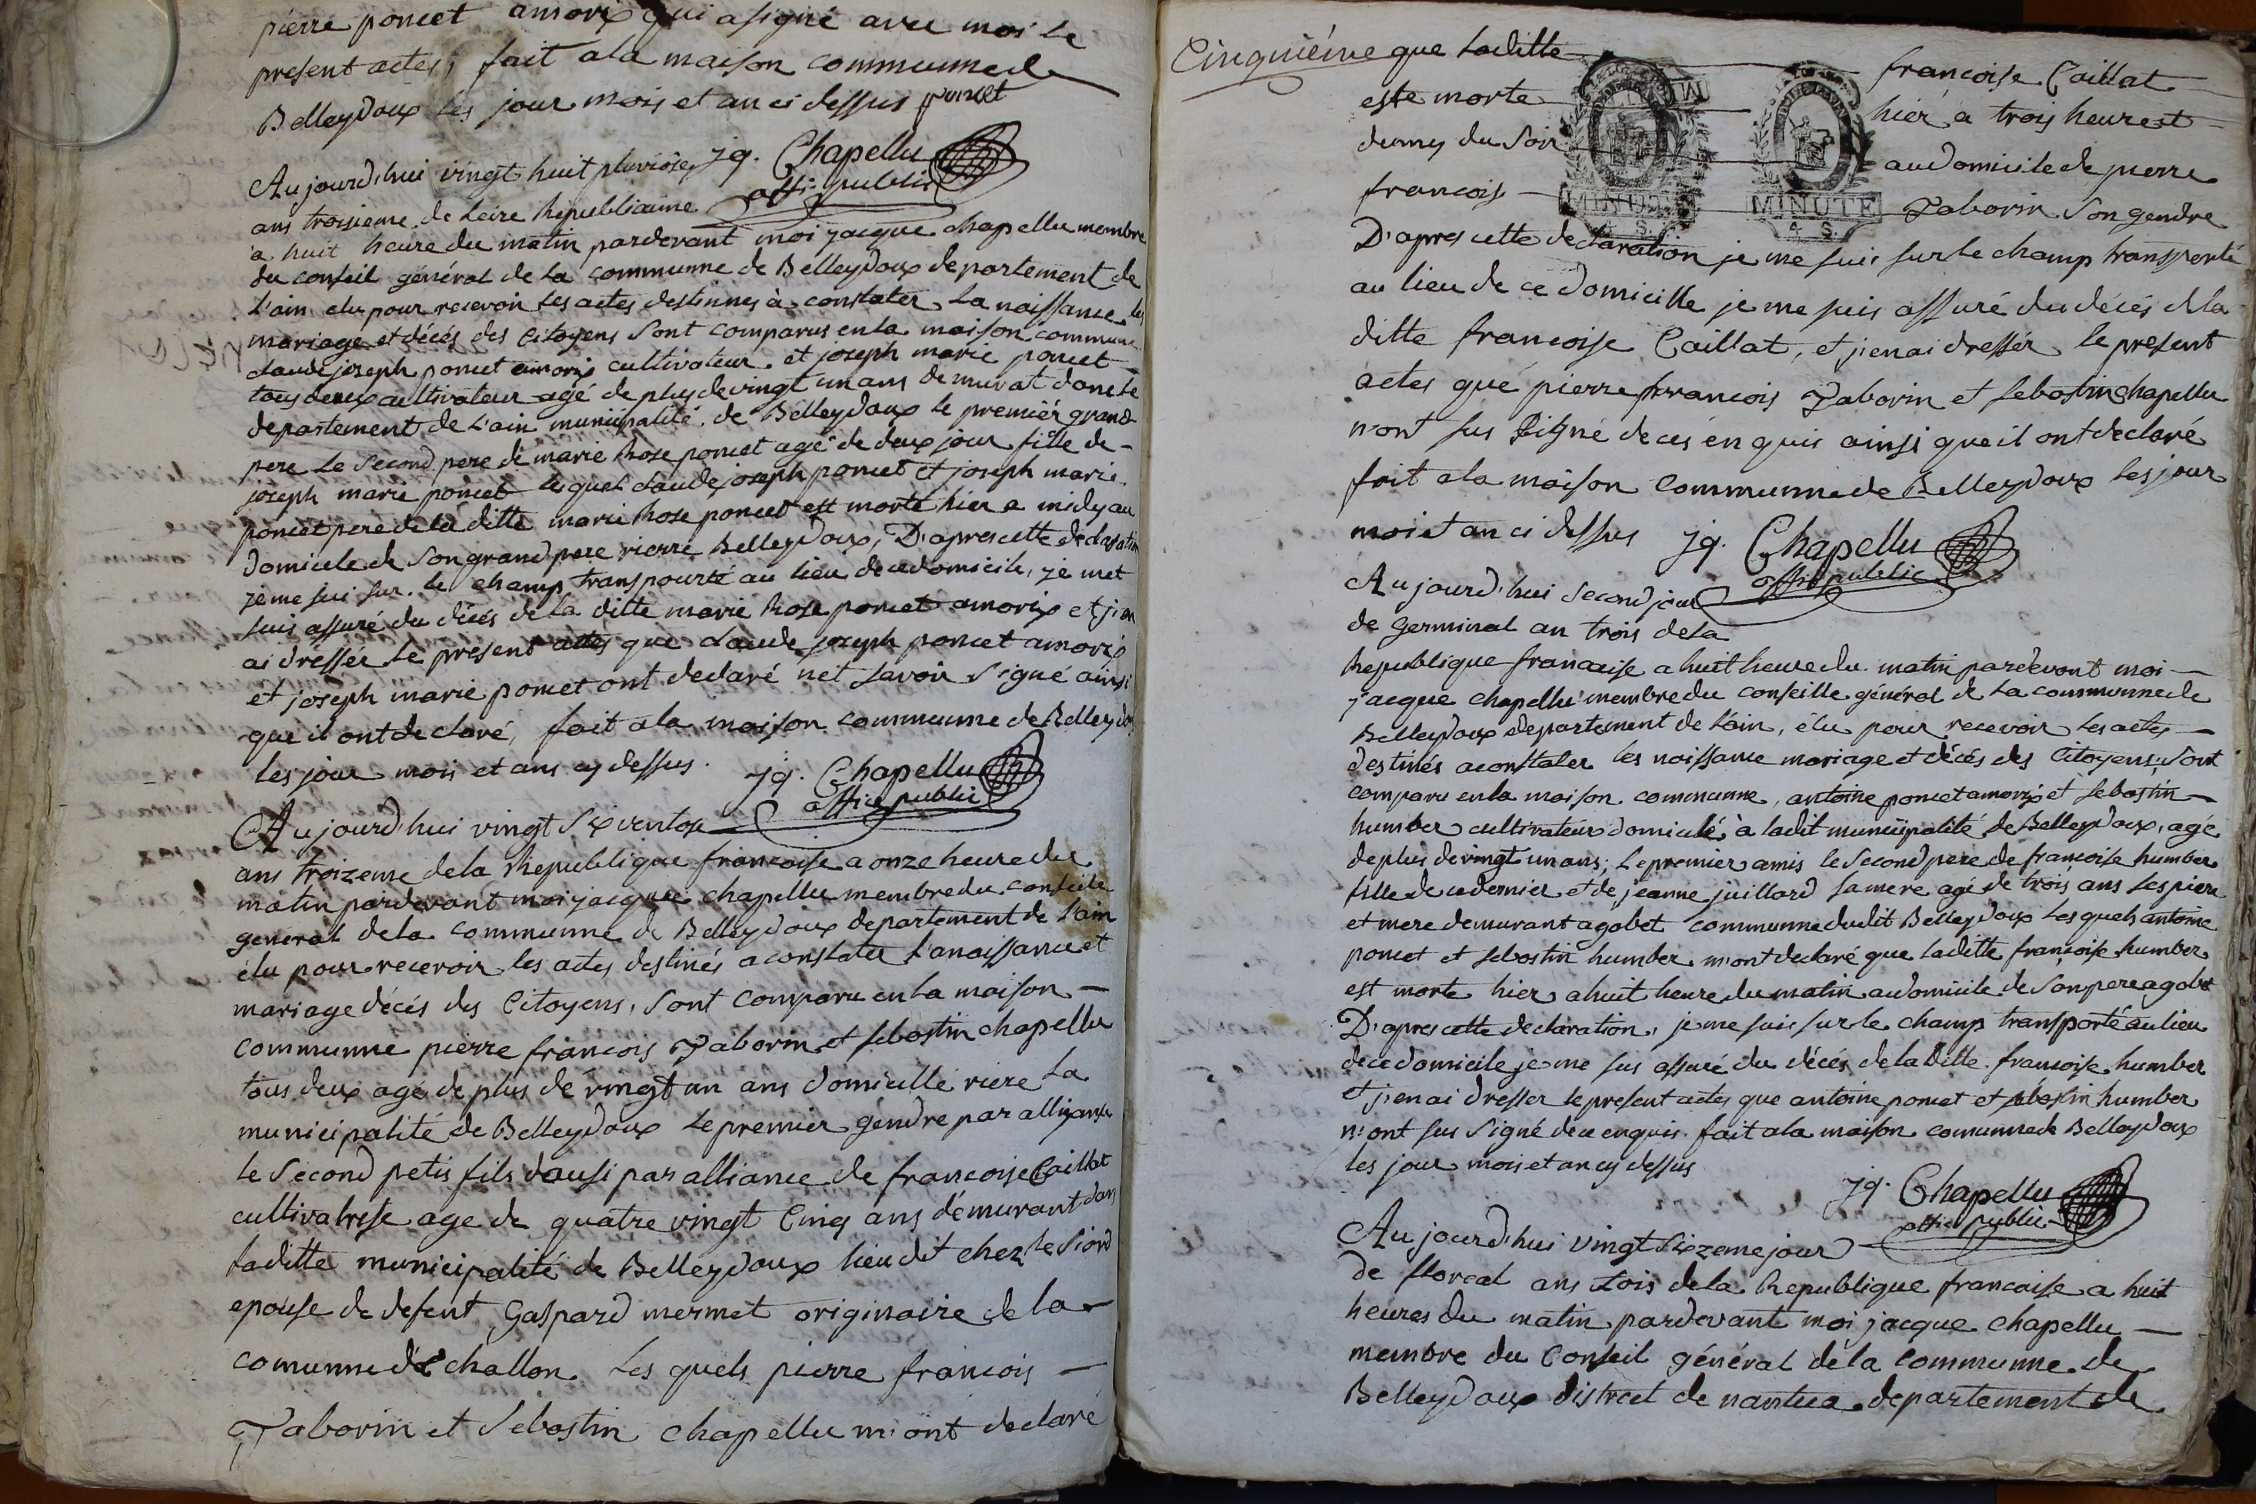 pierre poncet amorix qui a signé avec moi le
present actes, fait a la maison communne de
Belleydoux les jour mois et an ci dessus poncet
jq. Chapellu
offi. public
Aujourd'hui vingt huit pluviose
ans troisieme de leire Republicainne
a huit heure du matin pardevant moi jacque chapellu membre
du conseil général de la communne de Belleydoux departement de
l'ain elu pour recevoir les actes destinnes à constater la naissance les
mariage et décés des Citoyens sont comparus en la maison commune
claude joseph poncet amorix cultivateur et joseph marie poncet
tous deux cultivateur agé de plus de vingt un ans demurat dans le
departement de l'ain municipalité de Belleydoux le premiér grand
pere le second pere de marie Rose poncet agé de deux jour fille de
joseph marie poncet lesquel claude joseph poncet et joseph marie
poncet pere de la ditte marie Rose poncet est morte hier a midy au
domicile de son grand pere rierre Belleydoux, D'apres cette declaration
je me sui sur le champ transpourté au lieu de ce domicile, je met
suis assuré du décés de la ditte marie Rose poncet amorix et j'en
ai dréssér le present actes que claude joseph poncet amorix
et joseph marie poncet ont declaré net savoir signé ainsi
que il ont declaré, fait a la maison communne de Belleydoux
les jour mois et ans cy dessus.
jq. Chapellu
offic public
Aujourd'hui vingt six ventose
ans troizeme de la Republique francoise a onze heure du
matin pardevant moi jacque chapellu membre du conseile
general de la communne de Belleydoux departement de l'ain
élu pour recevoir les actes destinés a constater l'anaissance et
mariage décés des Citoyens, sont comparu en la maison
communne pierre francois Taborin et sebastin chapellu
tous deux agé de plus de vingt un ans domicillé riere la
municipalité de Belleydoux le premier gendre par allianse
le second petis fils dausi par alliance de francoise Caillat
cultivatrise age de quatre vingt Cinq ans démurant dans
laditte municipalité de Belleydoux lieu dit chez le Siord
epouse de defent Gaspard mermet originaire de la
comunne d'echallon les quels pierre francois
Taborin et sebastin chapellu m'ont declaré
Cinquiéme que laditte francoise Caillat
este morte hier a trois heure et
demy du soir au domicile de pierre
francois Taborin son gendre
MINUTE
MINUTE
D'apres cette declaration je me suis sur le champ transporté
au lieu de ce domicille je me suis assuré du décés de la
ditte francoise Caillat, et j'enai dressér le present
actes que pierre francois Taborin et sebastin chapellu
n'ont sus signé de ces enquis ainsi que il ont declaré
fait a la maison communne de Belleydoux les jour
mois et an ci dessus jq. Chapellu
offic public
Aujourd'hui second jour
de germinal an trois de la
Republique francaise a huit heure du matin pardevant moi
jacque chapellu membre du conseille général de la communne de
Belleydoux departement de l'ain, élu pour recevoir les actes
destinés a constater les naissance mariage et décés des Citoyens, sont
comparu en la maison communne, antoine poncet amorix et sebastin
humber cultivateur domicilé à ladit municipalité de Belleydoux, agé
de plus de vingt un ans, le premier amis le second pere de francoise humber
fille de ce dernier et de jeanne juillard sa mere agé de trois ans les piere
et mere demurant a gobet communne dudit Belleydoux les quels antoine
poncet et sebastin humber m'ont declaré que laditte françoise humber
est morte hier a huit heure du matin au domicile de son pere a gobet
D'apres cette declaration, je me suis sur le champ transporté au lieu
de ce domicile je me sus assuré du décés de la ditte francoise humber
et j'enai dresser le present actes que antoine poncet et sebastin humber
n'ont sus signé de ce enquis fait a la maison comunne de Belleydoux
les jour mois et an cy dessus
jq. Chapellu
offic public
Aujourd'hui vingt sixzeme jour
de floreal ans tois de la Republique francaise a huit
heures du matin pardevant moi jacque chapellu
membre du Conseil général de la communne de
Belleydoux distrect de nantua departement de